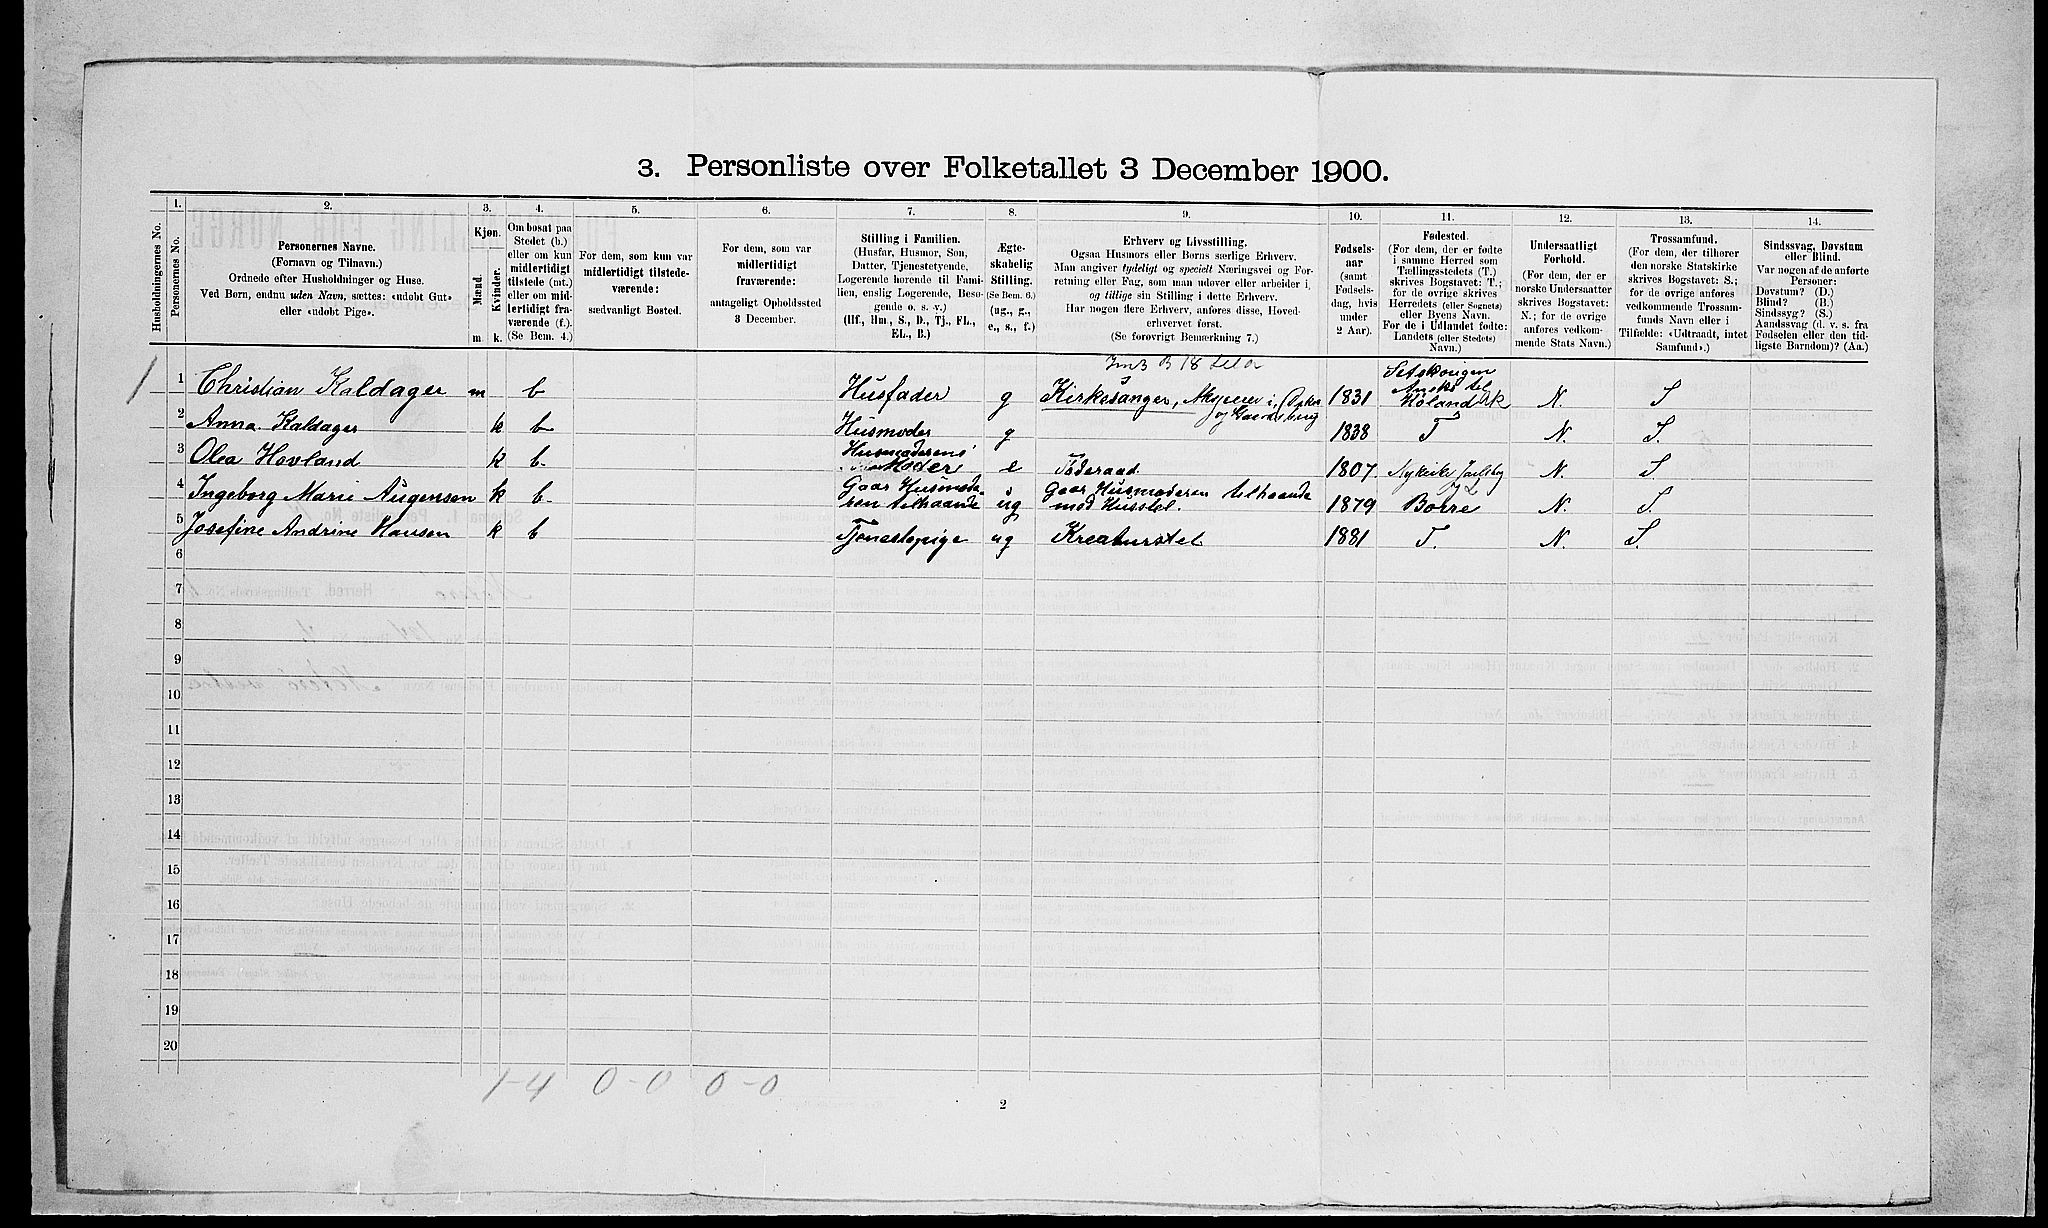 3. Personliste over Folketallet 3 December 1900.
Husholdningernes No.
1.
Personernes No.
2.
Personernes Navne.
(Fornavn og Tilnavn.)
Ordnede efter Husholdninger og Huse.
Ved Børn, endnu uden Navn, sættes: «udøbt Gut»
eller «udøbt Pige».
3.
Kjøn.
Mænd.
Kvinder.
m. k.
4.
Om bosat paa
Stedet (b.)
eller om kun
midlertidigt
tilstede (mt.)
eller om mid-
lertidigt fra-
værende (f.).
(Se Bem. 4.)
5.
For dem, som kun var
midlertidigt tilstede-
værende:
sædvanligt Bosted.
6.
For dem, som var
midlertidigt
fraværende:
antageligt Opholdssted
3 December.
7.
Stilling i Familien.
(Husfar, Husmor, Søn,
Datter, Tjenestetyende,
Logerende hørende til Fami-
lien, enslig Logerende, Besø-
gende o. s. v.)
(Hf., Hm., S., D., Tj., FL.,
EL., B.)
8.
Ægte-
skabelig
Stilling.
(Se Bem. 6.)
(ug., g.,
e., s., f.)
9.
Erhverv og Livsstilling.
Ogsaa Husmors eller Børns særlige Erhverv.
Man angiver tydeligt og specielt Næringsvei og For-
retning eller Fag, som man udøver eller arbeider i,
og tillige sin Stilling i dette Erhverv.
Har nogen flere Erhverv, anføres disse, Hoved-
erhvervet først.
(Se forøvrigt Bemærkning 7.)
10.
Fødsels-
aar
(samt
Fødsels-
dag, hvis
under
2 Aar).
11.
Fødested.
(For dem, der er fødte
i samme Herred som
Tællingsstedets (T.)
skrives Bogstavet: T.;
for de øvrige skrives
Herredets (eller Sognets)
eller Byens Navn.
For de i Udlandet fødte:
Landets (eller Stedets)
Navn.)
12.
Undersaatligt
Forhold.
(For dem, der er
norske Undersaatter
skrives Bogstavet:
N.; for de øvrige
anføres vedkom-
mende Stats Navn.)
13.
Trossamfund.
(For dem, der tilhører
den norske Statskirke
skrives Bogstavet: S.;
for de øvrige anføres
vedkommende Trossam-
funds Navn eller i
Tilfælde: «Udtraadt, intet
Samfund».)
14.
Sindssvag, Døvstum
eller Blind.
Var nogen af de anførte
Personer:
Døvstum? (D.)
Blind? (B.)
Sindssyg? (S.)
Aandssvag (d. v. s. fra
Fødselen eller den tid-
ligste Barndom)? (Aa.)
1 1 Christian Kaldager m b Husfader g Kirkesanger, 1831 Høland N. S
2 Anna Kaldager k b Husmoder g 1838 T N. S.
3 Olea Hovland k b. Husmoderens Moder e Føderaad 1807. Nykirke N. S.
4 Ingeborg Marie Augensen k b. Gaar Husmode-
ren tilhaande ug Gaar Husmoderen tilhaande
med Husstel. 1879 Borre N. S.
5 Josefine Andrine Hansen k b Tjenestepige ug Kreaturstel 1881 T. N. S.
6
7
8
9
10
11
12
13
14
15
16
17
18
19
20
1-4 0-0 0-0
2